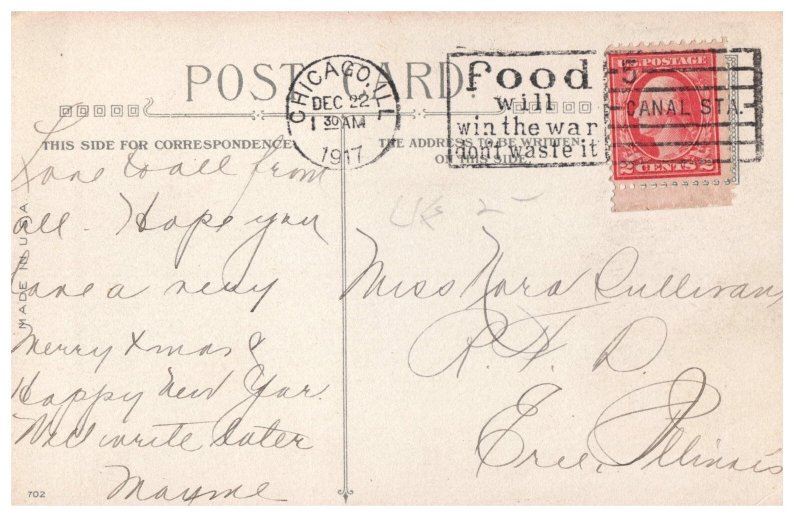 POST CARD.
CHICAGO, ILL.
DEC 22
1 30 AM
1917
food
will
win the war
dont waste it
5
CANAL STA.
U.S. POSTAGE
2 CENTS 2
THIS SIDE FOR CORRESPONDENCE
THE ADDRESS TO BE WRITTEN
ON THIS SIDE
MADE IN U.S.A
Love to all from
all. Hope you
have a very
Merry Xmas &
Happy New Year.
Will write later
Mayme
Miss Nora Sullivan,
Erie, Illinois
702